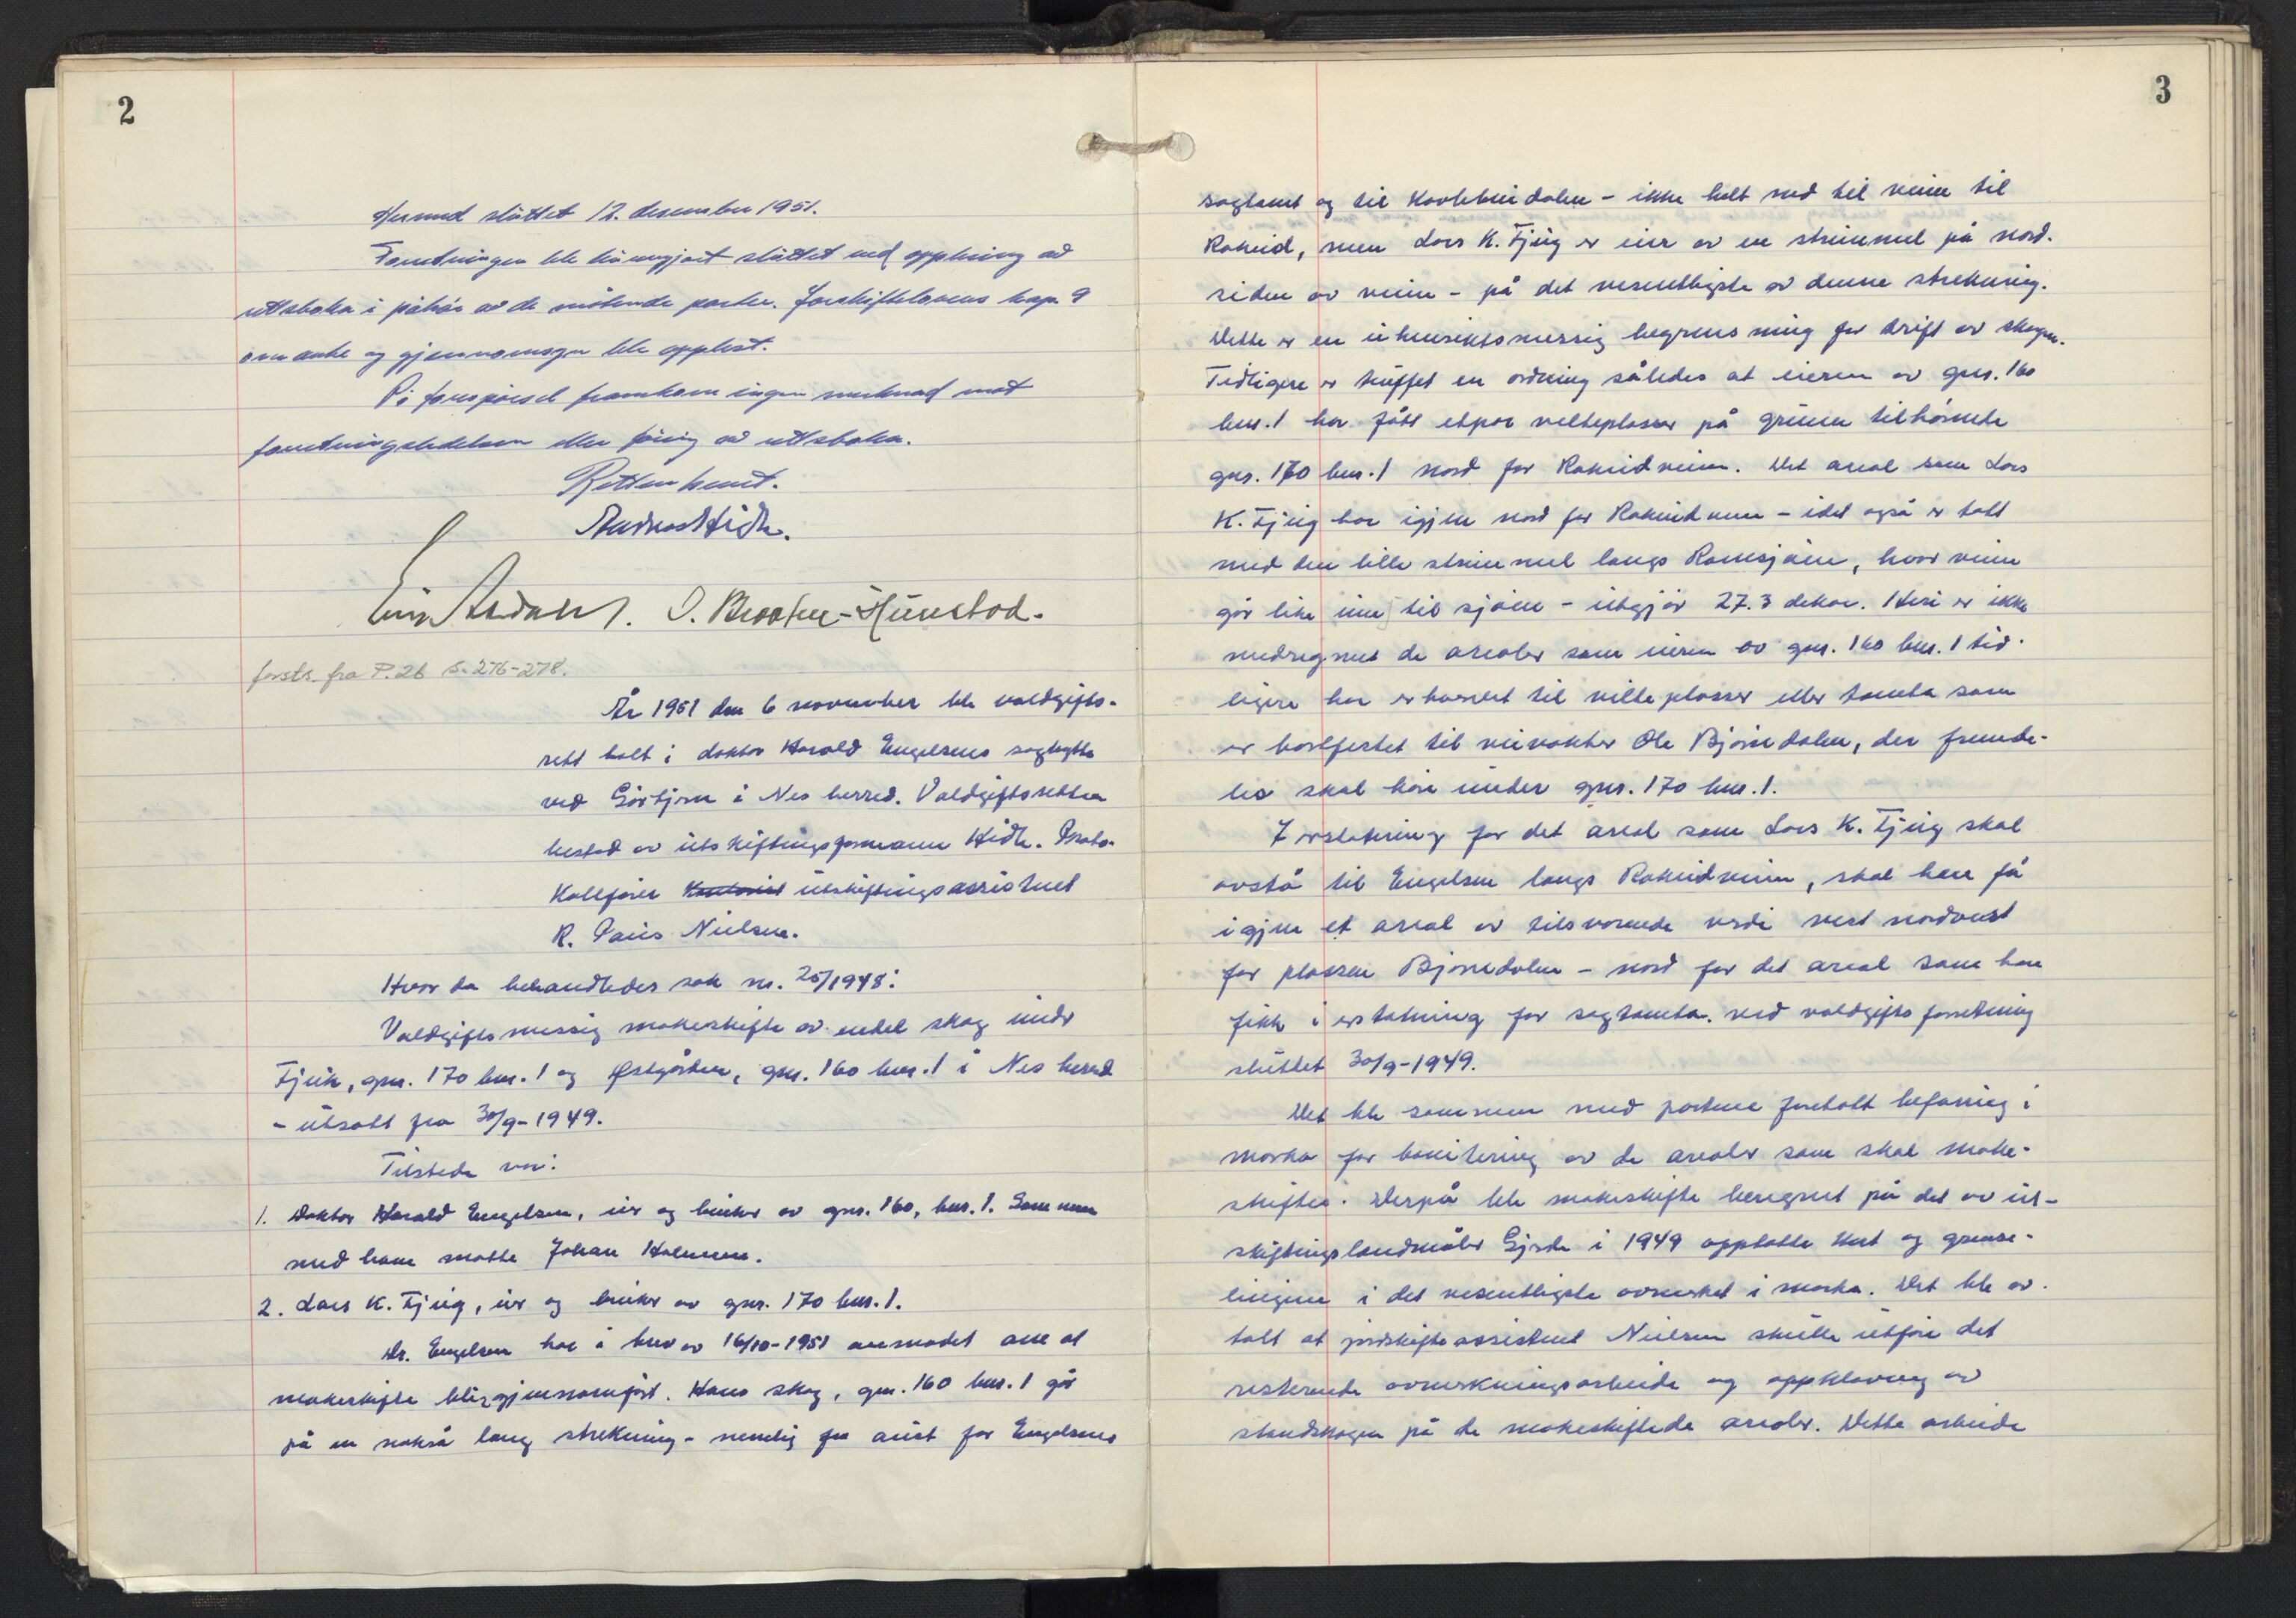 2
Hermed sluttet 12. desember 1951.
Forretningen ble kunngjort sluttet ved opplesing av
rettsboka i påhør av de møtende parter. Jordskiftelovens kap. 9
om anke og gjennomsyn ble opplest.
På forespørsel framkom ingen merknad mot
forretningsledelsen eller føring av rettsboka.
Retten hevet.
Andreas Hidle.
O. Braaten-
forts. fra P. 26 s. 276-278.
År 1951 den 6 november ble voldgifts-
rett holt i doktor Harald Engelsens saghytte
ved i Nes herred. Voldgiftsretten
bestod av utskiftningsformann Hidle. Proto-
kollfører utskiftningsassistent
R. Nielsen.
Hvor da behandledes sak nr. 25/1948:
Voldgiftsmessig makeskifte av endel skog under
Fjuk, gnr. 170 bnr. 1 og Østgården, gnr. 160 bnr. 1 i Nes herred
- utsatt fra 30/9-1949.
Tilstede var:
1. Doktor Harald Engelsen, eier og bruker av gnr. 160, bnr. 1. Sammen
med ham møtte Johan Holmen.
2. Lars K. Fjug, eier og bruker av gnr. 170 bnr. 1.
Dr. Engelsen har i brev av 16/10-1951 anmodet om at
makeskifte blir gjennomført. Hans skog, gnr. 160 bnr. 1 går
på en nokså lang strekning - nemlig fra aust for Engelsens
3
sagtomt og til - ikke helt ned til veien til
Rokeid, men Lars K. Fjug er eier av en strimmel på nord-
siden av veien - på det vesentligste av denne strekning.
Dette er en uhensiktsmessig begrensning for drift av skogen.
Tidligere er truffet en ordning således at eieren av gnr. 160
bnr. 1 har fått etpar velteplasser på grunn tilhørende
gnr. 170 bnr. 1 nord for Rokeidveien. Det areal som Lars
K. Fjug har igjen nord for Rokeidveien - idet også er tatt
med den lille strimmel langs Ramsjøen, hvor veien
går like inn til sjøen - utgjør 27.3 dekar. Heri er ikke
medregnet de arealer som eieren av gnr. 160 bnr. 1 tid-
ligere har ervervet til velteplasser eller tomta som
er bortfestet til veivokter Ole Bjørndalen, der fremde-
les skal høre under gnr. 170 bnr. 1.
I erstatning for det areal som Lars K. Fjug skal
avstå til Engelsen langs Rokeidveien, skal han få
igjen et areal av tilsvarende verdi vest nordvest
for plassen Bjørndalen - nord for det areal som han
fikk i erstatning for sagtomta. ved voldgiftsforretning
sluttet 30/9-1949.
Det ble sammen med partene foretatt befaring i
marka for bonitering av de arealer som skal make-
skiftes. Derpå ble makeskifte beregnet på det av ut-
skiftningslandmåler Gjerde i 1949 opptatte kart og grense-
linjene i det vesentligste avmerket i marka. Det ble av-
talt at jordskifteassistent Nielsen skulle utføre det
resterende avmerkningsarbeide og oppklaving av
standskogen på de makeskiftede arealer. Dette arbeide